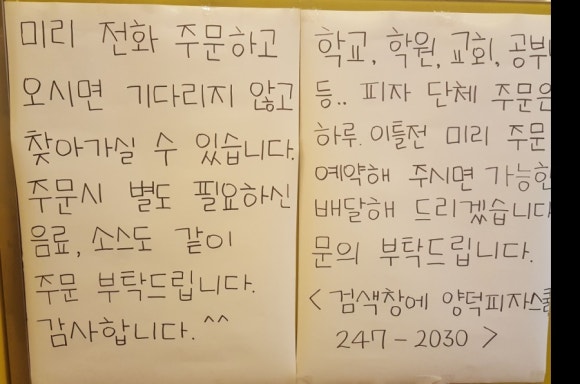 미리 전화 주문하고
오시면 기다리지 않고
찾아가실 수 있습니다.
주문시 별도 필요하신
음료, 소스도 같이
주문 부탁드립니다.
감사합니다. ^^
학교, 학원, 교회, 공부
등.. 피자 단체 주문은
하루. 이틀전 미리 주문
예약해 주시면 가능한
배달해 드리겠습니다
문의 부탁드립니다.
< 검색창에 양덕피자스쿨
247-2030 >